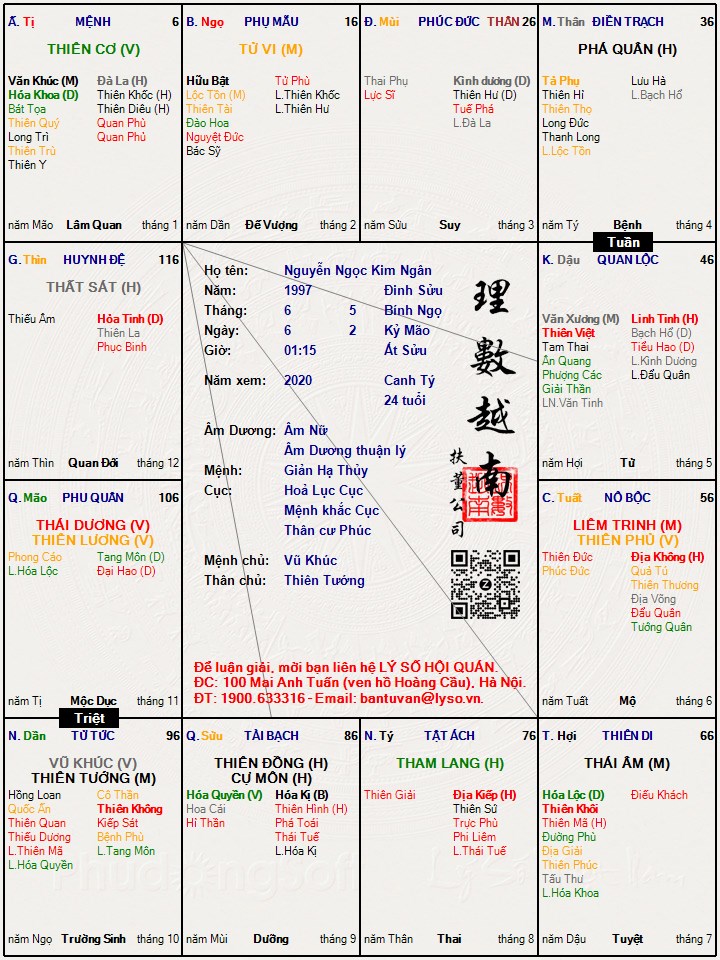 Ấ. Tị MỆNH 6
THIÊN CƠ (V)
Văn Khúc (M) Đà La (H)
Hóa Khoa (D) Thiên Khốc (H)
Bát Tọa Thiên Diêu (H)
Thiên Quý Quan Phù
Long Trì Quan Phủ
Thiên Trù
Thiên Y
năm Mão Lâm Quan tháng 1
B. Ngọ PHỤ MẪU 16
TỬ VI (M)
Hữu Bật Tử Phù
Lộc Tồn (M) L.Thiên Khốc
Thiên Tài L.Thiên Hư
Đào Hoa
Nguyệt Đức
Bác Sỹ
năm Dần Đế Vượng tháng 2
Đ. Mùi PHÚC ĐỨC THÂN 26
Thai Phụ Kình dương (D)
Lực Sĩ Thiên Hư (D)
Tuế Phá
L.Đà La
năm Sửu Suy tháng 3
M. Thân ĐIỀN TRẠCH 36
PHÁ QUÂN (H)
Tả Phụ Lưu Hà
Thiên Hỉ L.Bạch Hổ
Thiên Thọ
Long Đức
Thanh Long
L.Lộc Tồn
năm Tý Bệnh tháng 4
Tuần
G. Thìn HUYNH ĐỆ 116
THẤT SÁT (H)
Thiếu Âm Hỏa Tinh (D)
Thiên La
Phục Binh
năm Thìn Quan Đới tháng 12
Họ tên: Nguyễn Ngọc Kim Ngân
Năm: 1997 Đinh Sửu
Tháng: 6 5 Bính Ngọ
Ngày: 6 2 Kỷ Mão
Giờ: 01:15 Ất Sửu
Năm xem: 2020 Canh Tý
24 tuổi
Âm Dương: Âm Nữ
Âm Dương thuận lý
Mệnh: Giản Hạ Thủy
Cục: Hoả Lục Cục
Mệnh khắc Cục
Thân cư Phúc
Mệnh chủ: Vũ Khúc
Thân chủ: Thiên Tướng
理數越南
扶董公司
Để luận giải, mời bạn liên hệ LÝ SỐ HỘI QUÁN.
ĐC: 100 Mai Anh Tuấn (ven hồ Hoàng Cầu), Hà Nội.
ĐT: 1900.633316 - Email: bantuvan@lyso.vn.
K. Dậu QUAN LỘC 46
Văn Xương (M) Linh Tinh (H)
Thiên Việt Bạch Hổ (D)
Tam Thai Tiểu Hao (D)
Ân Quang L.Kình Dương
Phượng Các L.Đẩu Quân
Giải Thần
LN.Văn Tinh
năm Hợi Tử tháng 5
Q. Mão PHU QUÂN 106
THÁI DƯƠNG (V)
THIÊN LƯƠNG (V)
Phong Cáo Tang Môn (D)
L.Hóa Lộc Đại Hao (D)
năm Tị Mộc Dục tháng 11
Triệt
C. Tuất NÔ BỘC 56
LIÊM TRINH (M)
THIÊN PHỦ (V)
Thiên Đức Địa Không (H)
Phúc Đức Quả Tú
Thiên Thương
Địa Võng
Đẩu Quân
Tướng Quân
năm Tuất Mộ tháng 6
N. Dần TỬ TỨC 96
VŨ KHÚC (V)
THIÊN TƯỚNG (M)
Hồng Loan Cô Thần
Quốc Ấn Thiên Không
Thiên Quan Kiếp Sát
Thiếu Dương Bệnh Phù
L.Thiên Mã L.Tang Môn
L.Hóa Quyền
năm Ngọ Trường Sinh tháng 10
Q. Sửu TÀI BẠCH 86
THIÊN ĐỒNG (H)
CỰ MÔN (H)
Hóa Quyền (V) Hóa Kị (B)
Hoa Cái Thiên Hình (H)
Hỉ Thần Phá Toái
Thái Tuế
L.Hóa Kị
năm Mùi Dưỡng tháng 9
N. Tý TẬT ÁCH 76
THAM LANG (H)
Thiên Giải Địa Kiếp (H)
Thiên Sứ
Trực Phù
Phi Liêm
L.Thái Tuế
năm Thân Thai tháng 8
T. Hợi THIÊN DI 66
THÁI ÂM (M)
Hóa Lộc (D) Điếu Khách
Thiên Khôi
Thiên Mã (H)
Đường Phù
Địa Giải
Thiên Phúc
Tấu Thư
L.Hóa Khoa
năm Dậu Tuyệt tháng 7